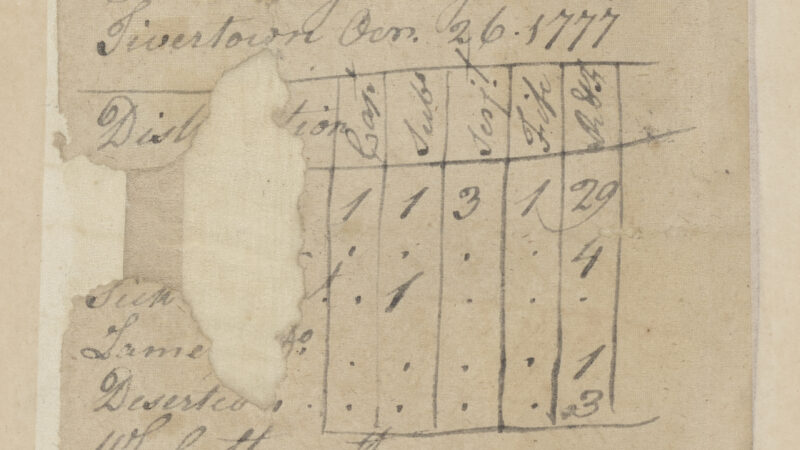 Tivertown Octr. 26. 1777
Dist tion Cap Subs Serjt Fife R&F
1 1 3 1 29
. . . . 4
Sick . 1 . . .
Lame do. . . . . 1
Desertion . . . . . 3